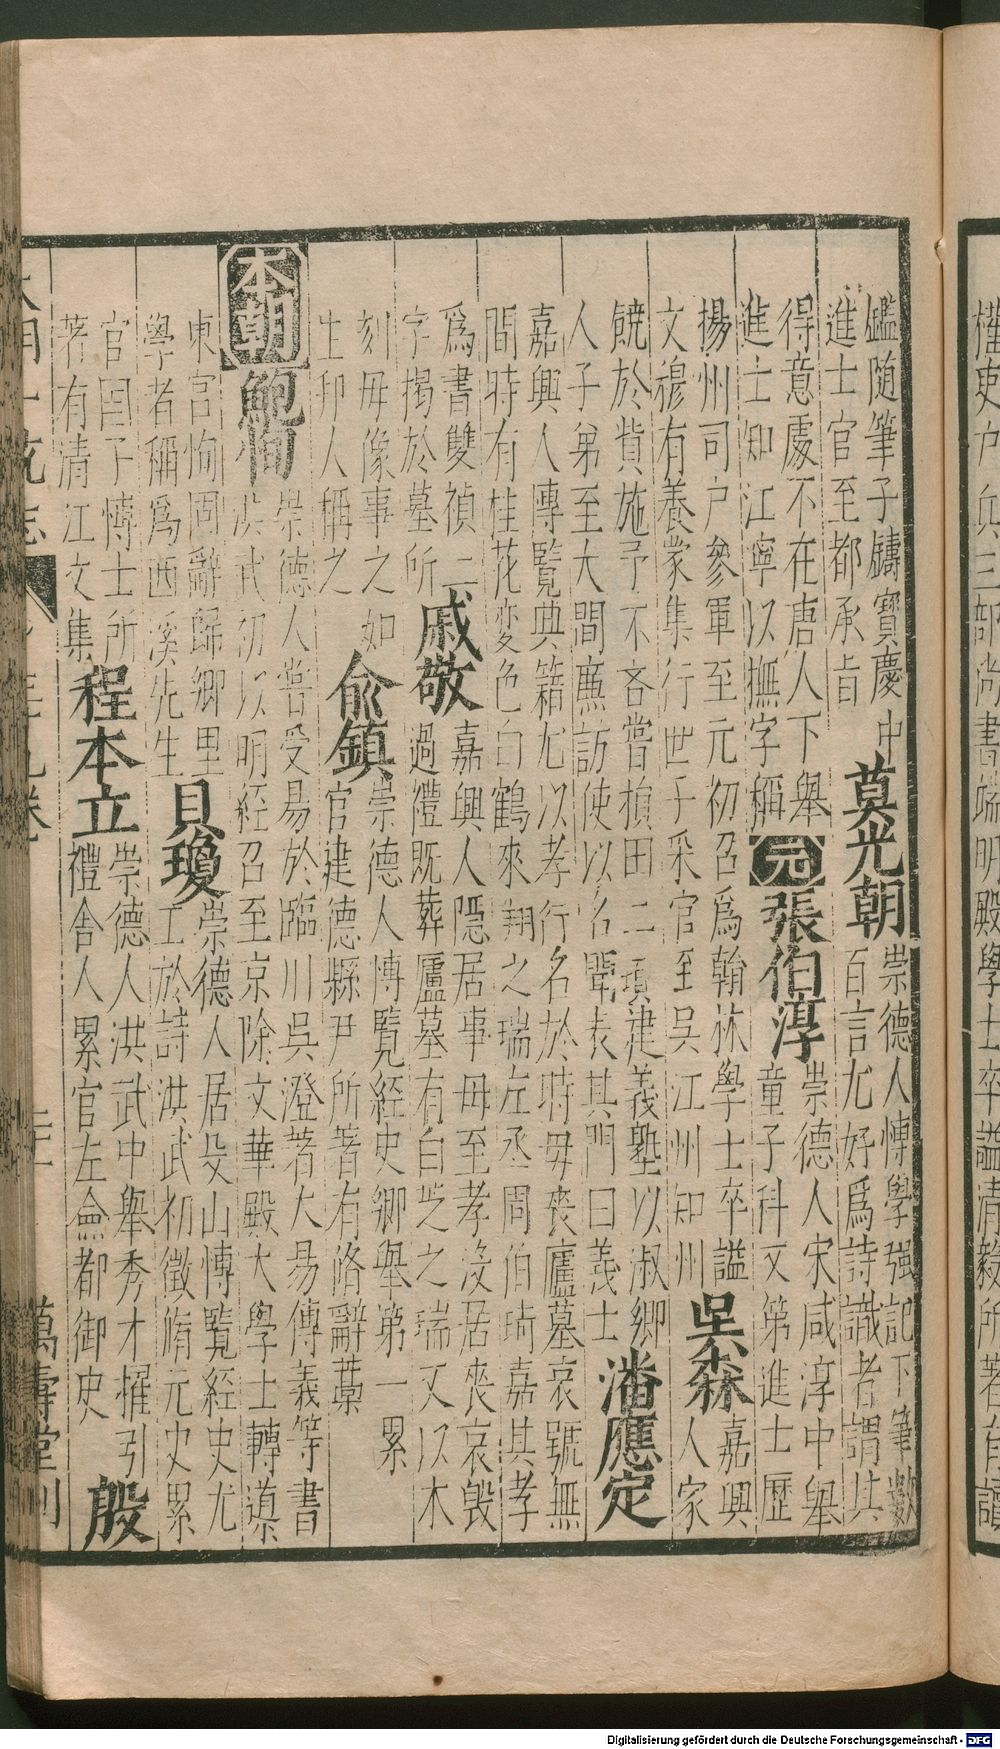 權吏户兵三部尚書端明殿學士卒謚清毅所著有讀
鑑随筆子鑄寶慶中
進士官至都承旨
莫光朝
崇德人慱學强記下筆數
百言尤好爲詩識者謂其
得意處不在唐人下舉
進士知江寧以撫字稱
元
張伯淳
崇德人宋咸淳中舉
童子科文第進士歷
揚州司户參軍至元初召爲翰林學士卒謚
文穆有養蒙集行世子采官至吳江州知州
吳森
嘉興
人家
饒於貲施予不吝嘗損田二頃建義塾以淑鄉
人子弟至大間亷訪使以名聞表其門曰義士
潘應定
嘉興人慱覽典籍尤以孝行名於時母丧廬墓哀號無
間時有桂花変色白鶴來翔之瑞左丞周伯琦嘉其孝
爲書雙禎二
字揭於墓所
戚敬
嘉興人隱居事母至孝沒居喪哀毁
過禮既葬廬墓有白芝之瑞又以木
刻母像事之如
生邦人稱之
俞鎮
崇德人慱覽經史鄉舉第一累
官建德縣尹所著有脩辭藁
本朝
鮑恂
崇德人嘗受易於臨川吳澄著大易傳義等書
洪武初以明經召至京除文華殿大學士轉導
東宮恂固辭歸鄉里
學者稱爲西溪先生
貝瓊
崇德人居殳山慱覽經史尤
工於詩洪武初徵脩元史累
官国子慱士所
著有清江文集
程本立
崇德人洪武中舉秀才擢引
禮舍人累官左僉都御史
殷
萬壽堂刊
Digitalisierung gefördert durch die Deutsche Forschungsgemeinschaft - DFG